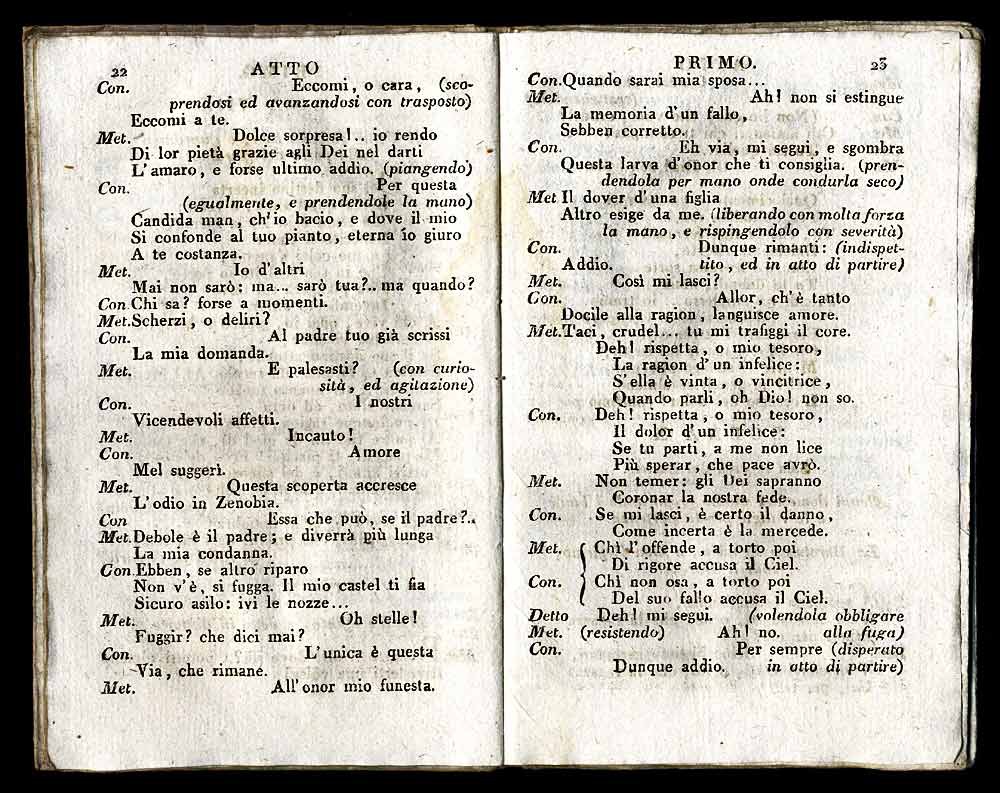 22 ATTO
Con. Eccomi, o cara, (sco-
prendosi ed avanzandosi con trasposto)
Eccomi a te.
Met. Dolce sorpresa!.. io rendo
Di lor pietà grazie agli Dei nel darti
L'amaro, e forse ultimo addio. (piangendo)
Con. Per questa
(egualmente, e prendendole la mano)
Candida man, ch'io bacio, e dove il mio
Si confonde al tuo pianto, eterna io giuro
A te costanza.
Met. Io d'altri
Mai non sarò: ma... sarò tua?.. ma quando?
Con Chi sa? forse a momenti.
Met. Scherzi, o deliri?
Con. Al padre tuo già scrissi
La mia domanda.
Met. E palesasti? (con curio-
sità, ed agitazione)
Con. I nostri
Vicendevoli affetti.
Met. Incauto!
Con. Amore
Mel suggerì.
Met. Questa scoperta accresce
L'odio in Zenobia.
Con Essa che può, se il padre?..
Met. Debole è il padre; e diverrà più lunga
La mia condanna.
Con. Ebben, se altro riparo
Non v'è, si fugga. Il mio castel ti fia
Sicuro asilo: ivi le nozze...
Met. Oh stelle!
Fuggir? che dici mai?
Con. L'unica è questa
Via, che rimane.
Met. All'onor mio funesta.
PRIMO. 23
Con. Quando sarai mia sposa...
Met. Ah! non si estingue
La memoria d'un fallo,
Sebben corretto.
Con. Eh via, mi segui, e sgombra
Questa larva d'onor che ti consiglia. (pren-
dendola per mano onde condurla seco)
Met Il dover d'una figlia
Altro esige da me. (liberando con molta forza
la mano, e rispingendolo con severità)
Con. Dunque rimanti: (indispet-
Addio. tito, ed in atto di partire)
Met. Così mi lasci?
Con. Allor, ch'è tanto
Docile alla ragion, languisce amore.
Met. Taci, crudel... tu mi trafiggi il core.
Deh! rispetta, o mio tesoro,
La ragion d'un infelice:
S'ella è vinta, o vincitrice,
Quando parli, oh Dio! non so.
Con. Deh! rispetta, o mio tesoro,
Il dolor d'un infelice:
Se tu parti, a me non lice
Più sperar, che pace avrò.
Met. Non temer: gli Dei sapranno
Coronar la nostra fede.
Con. Se mi lasci, è certo il danno,
Come incerta è la mercede.
Met. Chì l'offende, a torto poi
Di rigore accusa il Ciel.
Con. Chì non osa, a torto poi
Del suo fallo accusa il Ciel.
Detto Deh! mi segui. (volendola obbligare
Met. (resistendo) Ah! no. alla fuga)
Con. Per sempre (disperato
Dunque addio. in atto di partire)